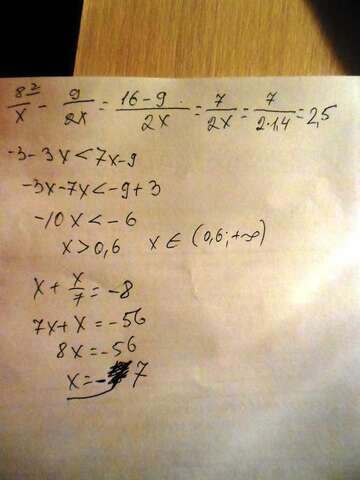 8²/x - 9/2x = 16-9/2x = 7/2x = 7/2·1,4 = 2,5
-3-3x<7x-9
-3x-7x<-9+3
-10x<-6
x>0,6 x∈(0,6;+∞)
x+x/7=-8
7x+x=-56
8x=-56
x=-7